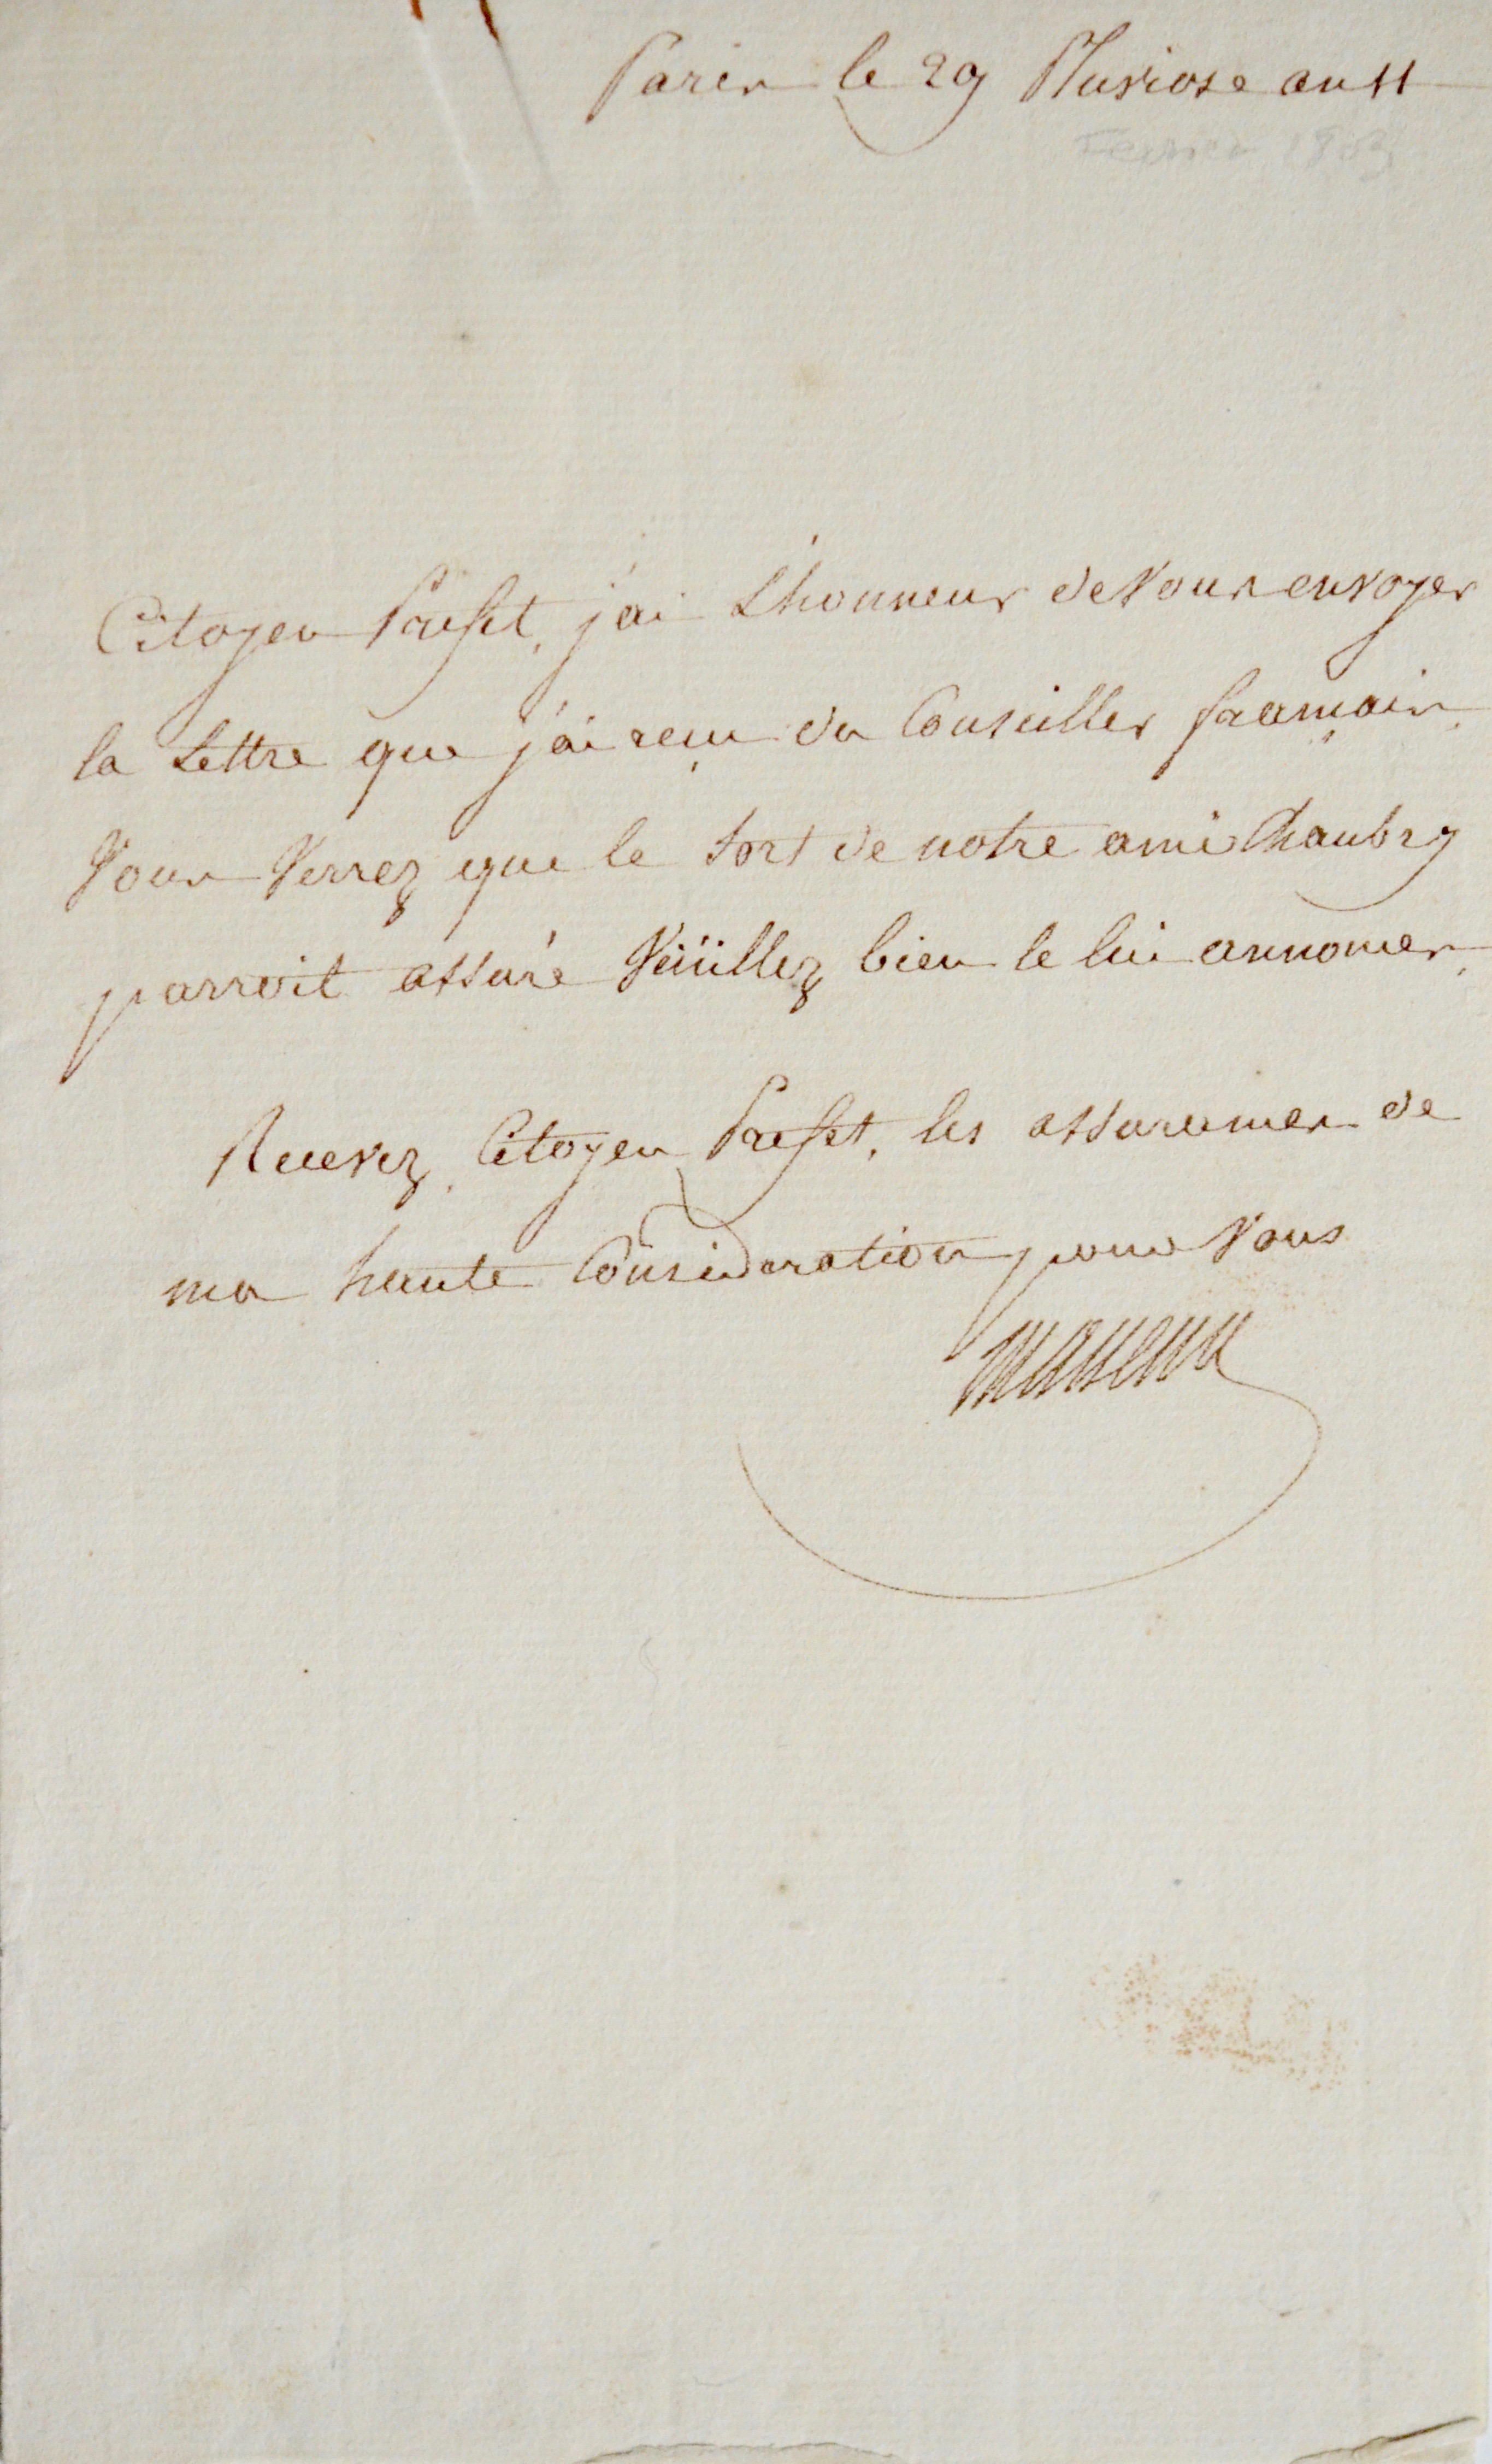 Paris le 29 Pluviose an 11
Fevrier 1803
Citoyen Prefet, j'ai L'honneur de Vous envoyer
la Lettre que j'ai reçu du Conseiller français.
Vous Verrez que le sort de notre ami Chaubry
parroit assuré Veüillez bien le lui annoncer.
Recevez, Citoyen Prefet, les assurances de
ma haute Consideration pour Vous
Massena